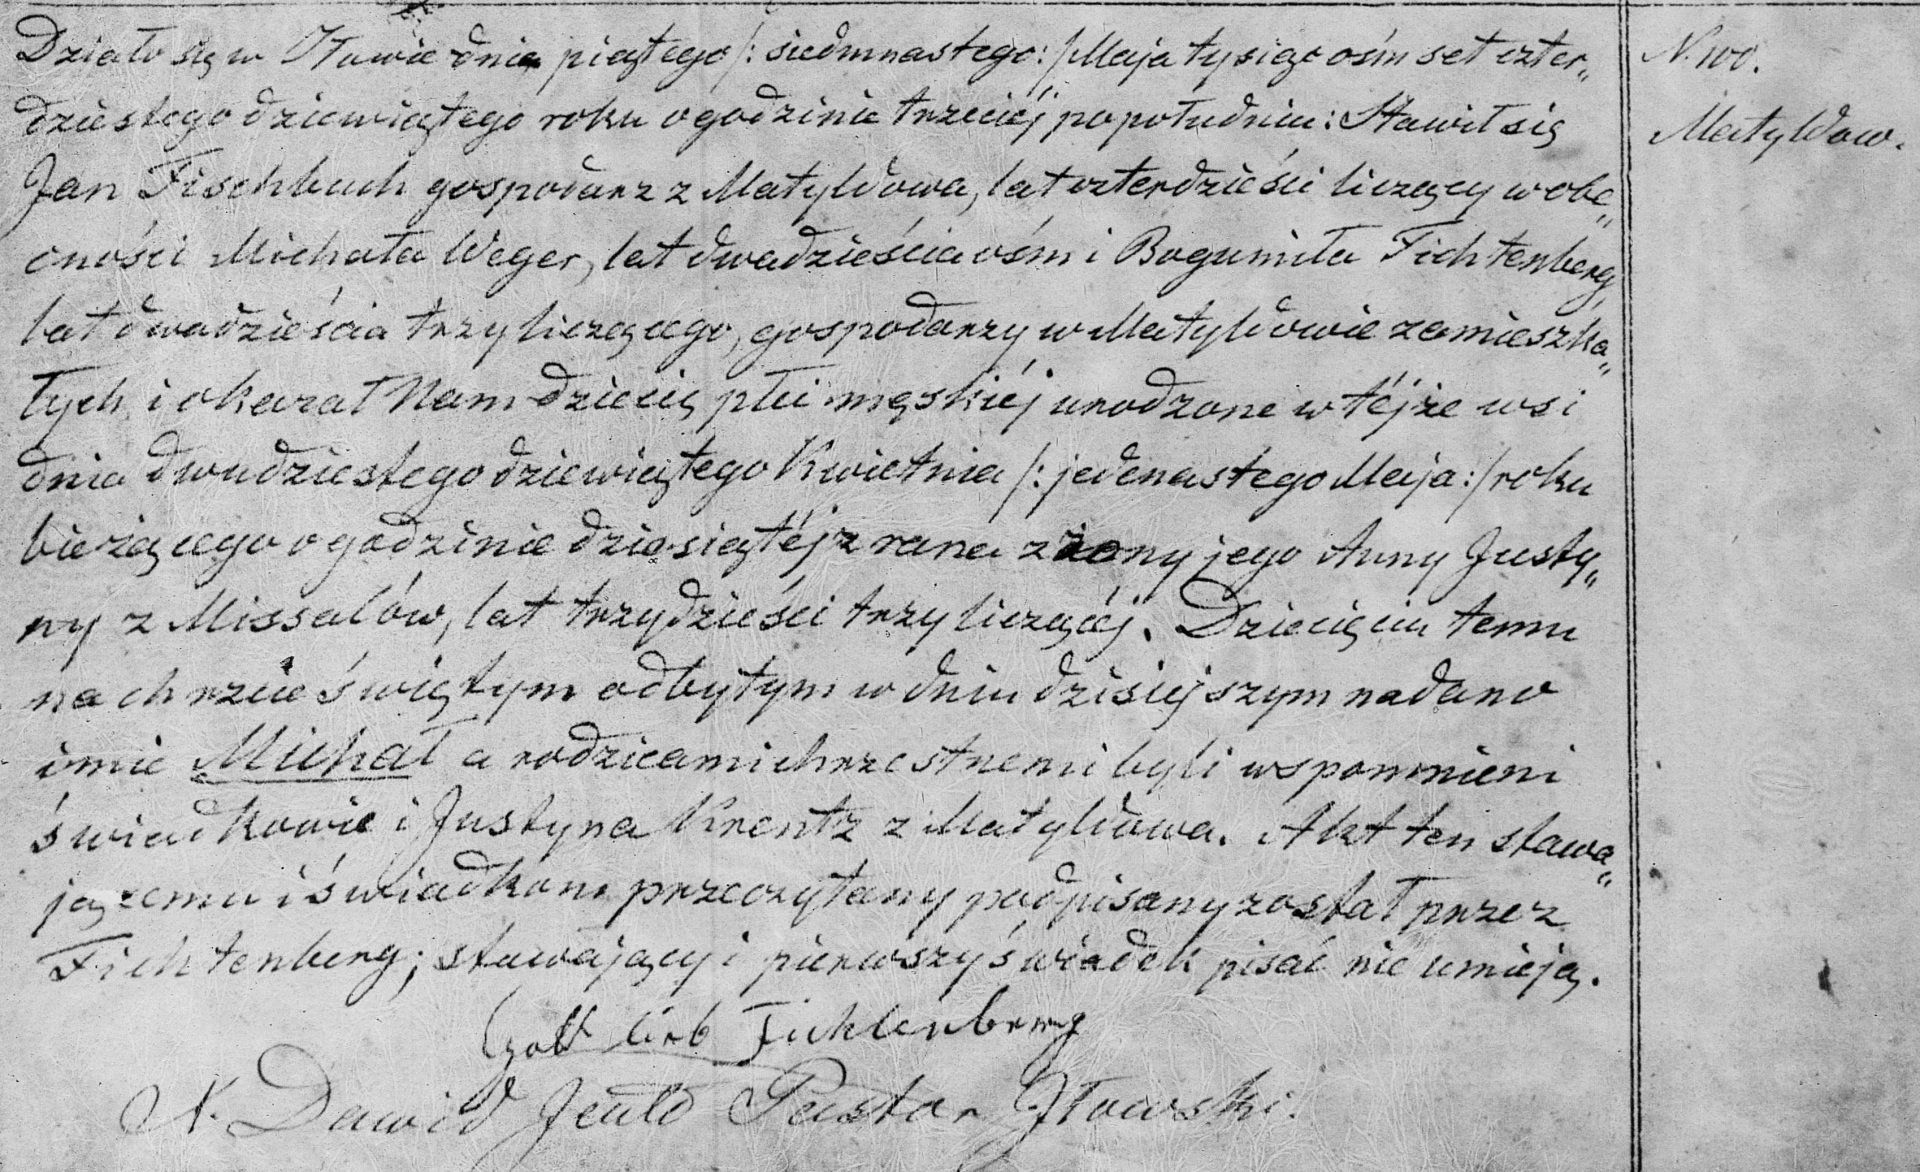 Działo się w Iłowie dnia piątego /: siedmnastego :/ Maja tysiąc ośm set czter„
dziestego dziewiątego roku o godzinie trzeciéj popołudniu: Stawił się
Jan Fischbuch gospodarz z Matyldowa, lat czterdzieści liczący w obe„
cności Michała Weger, lat dwadzieścia ośm i Bogumiła Fichtenberg,
lat dwadzieścia trzy liczącego, gospodarzy w Matyldowie zamieszka„
łych i okazał Nam dziecię płci męskiéj urodzone w téjże wsi
dnia dwudziestego dziewiątego Kwietnia /: jedenastego Maja :/ roku
bieżącego o godzinie dziesiątéj z rana z żony jego Anny Justy„
ny z Missalów, lat trzydzieści trzy liczącéj. Dziecięciu temu
na chrzcie świętym odbytym w dniu dzisiejszym nadano
imie Michał a rodzicami chrzestnemi byli wspomnieni
świadkowie i Justyna Krentz z Matyldowa. Akt ten stawa„
jącemu i świadkom przeczytany podpisany został przez
Fichtenberg; stawający i pierwszy świadek pisać nie umieją.
Gottlieb Fichtenberg
Dawid Pastor Iłowski.
N. 100.
Matyldow.